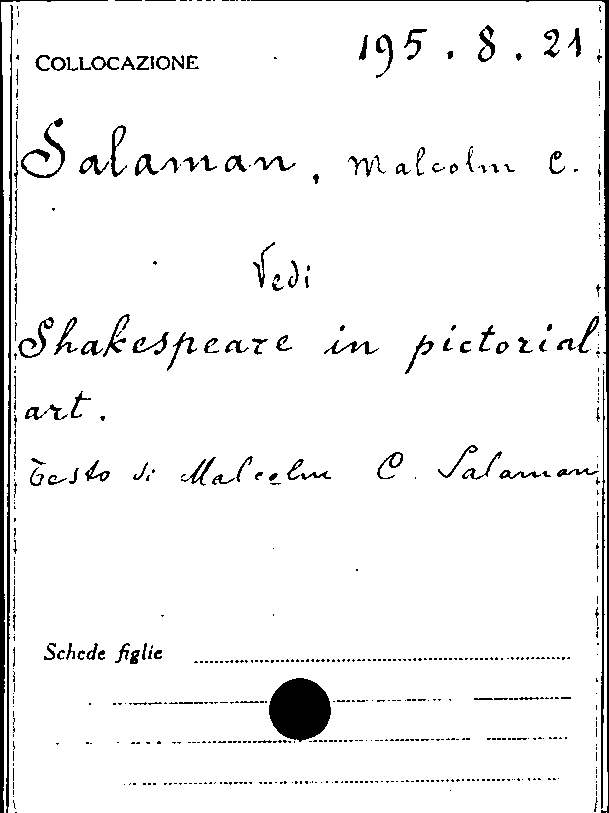 COLLOCAZIONE 195.8.21
Salaman, Malcolm C.
Vedi
Shakespeare in pictorial
art.
Testo di Malcolm C. Salaman
Schede figlie